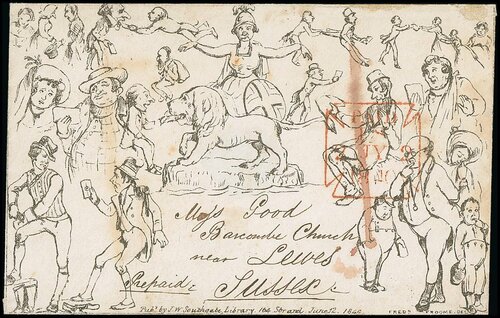 Miss Good
Barcombe Church
near Lewes
Prepaid Sussex
Pub.d by J.W. Southgate, Library 164 Strand June 12. 1840.
FRED.K